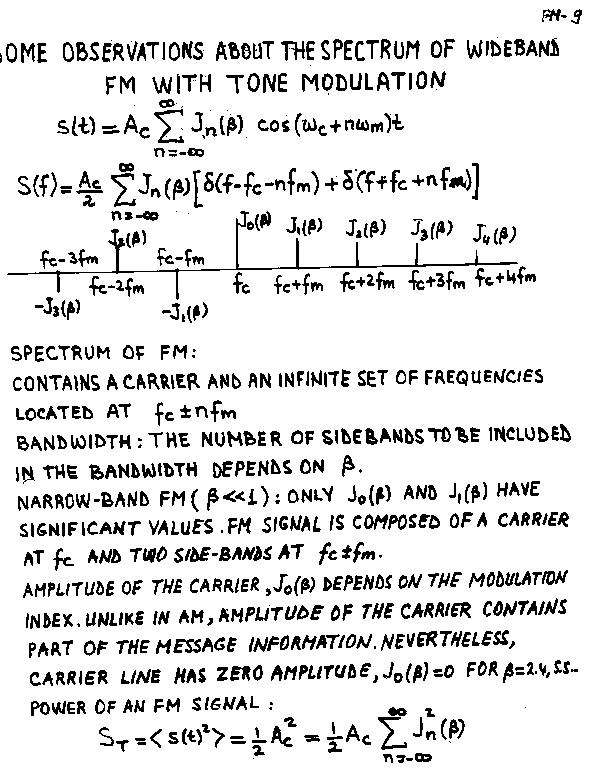 FM-9
OME OBSERVATIONS ABOUT THE SPECTRUM OF WIDEBAND
FM WITH TONE MODULATION
s(t) = Ac ∑_{n=-∞}^{∞} Jn(β) cos(ωc+nωm)t
S(f) = Ac/2 ∑_{n=-∞}^{∞} Jn(β)[δ(f-fc-nfm)+δ(f+fc+nfm)]
J2(β) J0(β) J1(β) J2(β) J3(β) J4(β)
fc-3fm fc-fm
fc-2fm fc fc+fm fc+2fm fc+3fm fc+4fm
-J3(β) -J1(β)
SPECTRUM OF FM:
CONTAINS A CARRIER AND AN INFINITE SET OF FREQUENCIES
LOCATED AT fc ± nfm
BANDWIDTH: THE NUMBER OF SIDEBANDS TO BE INCLUDED
IN THE BANDWIDTH DEPENDS ON β.
NARROW-BAND FM (β<<1): ONLY J0(β) AND J1(β) HAVE
SIGNIFICANT VALUES. FM SIGNAL IS COMPOSED OF A CARRIER
AT fc AND TWO SIDE-BANDS AT fc±fm.
AMPLITUDE OF THE CARRIER, J0(β) DEPENDS ON THE MODULATION
INDEX. UNLIKE IN AM, AMPLITUDE OF THE CARRIER CONTAINS
PART OF THE MESSAGE INFORMATION. NEVERTHELESS,
CARRIER LINE HAS ZERO AMPLITUDE, J0(β)=0 FOR β=2.4, 5.5-
POWER OF AN FM SIGNAL:
ST = <s(t)²> = 1/2 Ac² = 1/2 Ac ∑_{n=-∞}^{∞} Jn²(β)